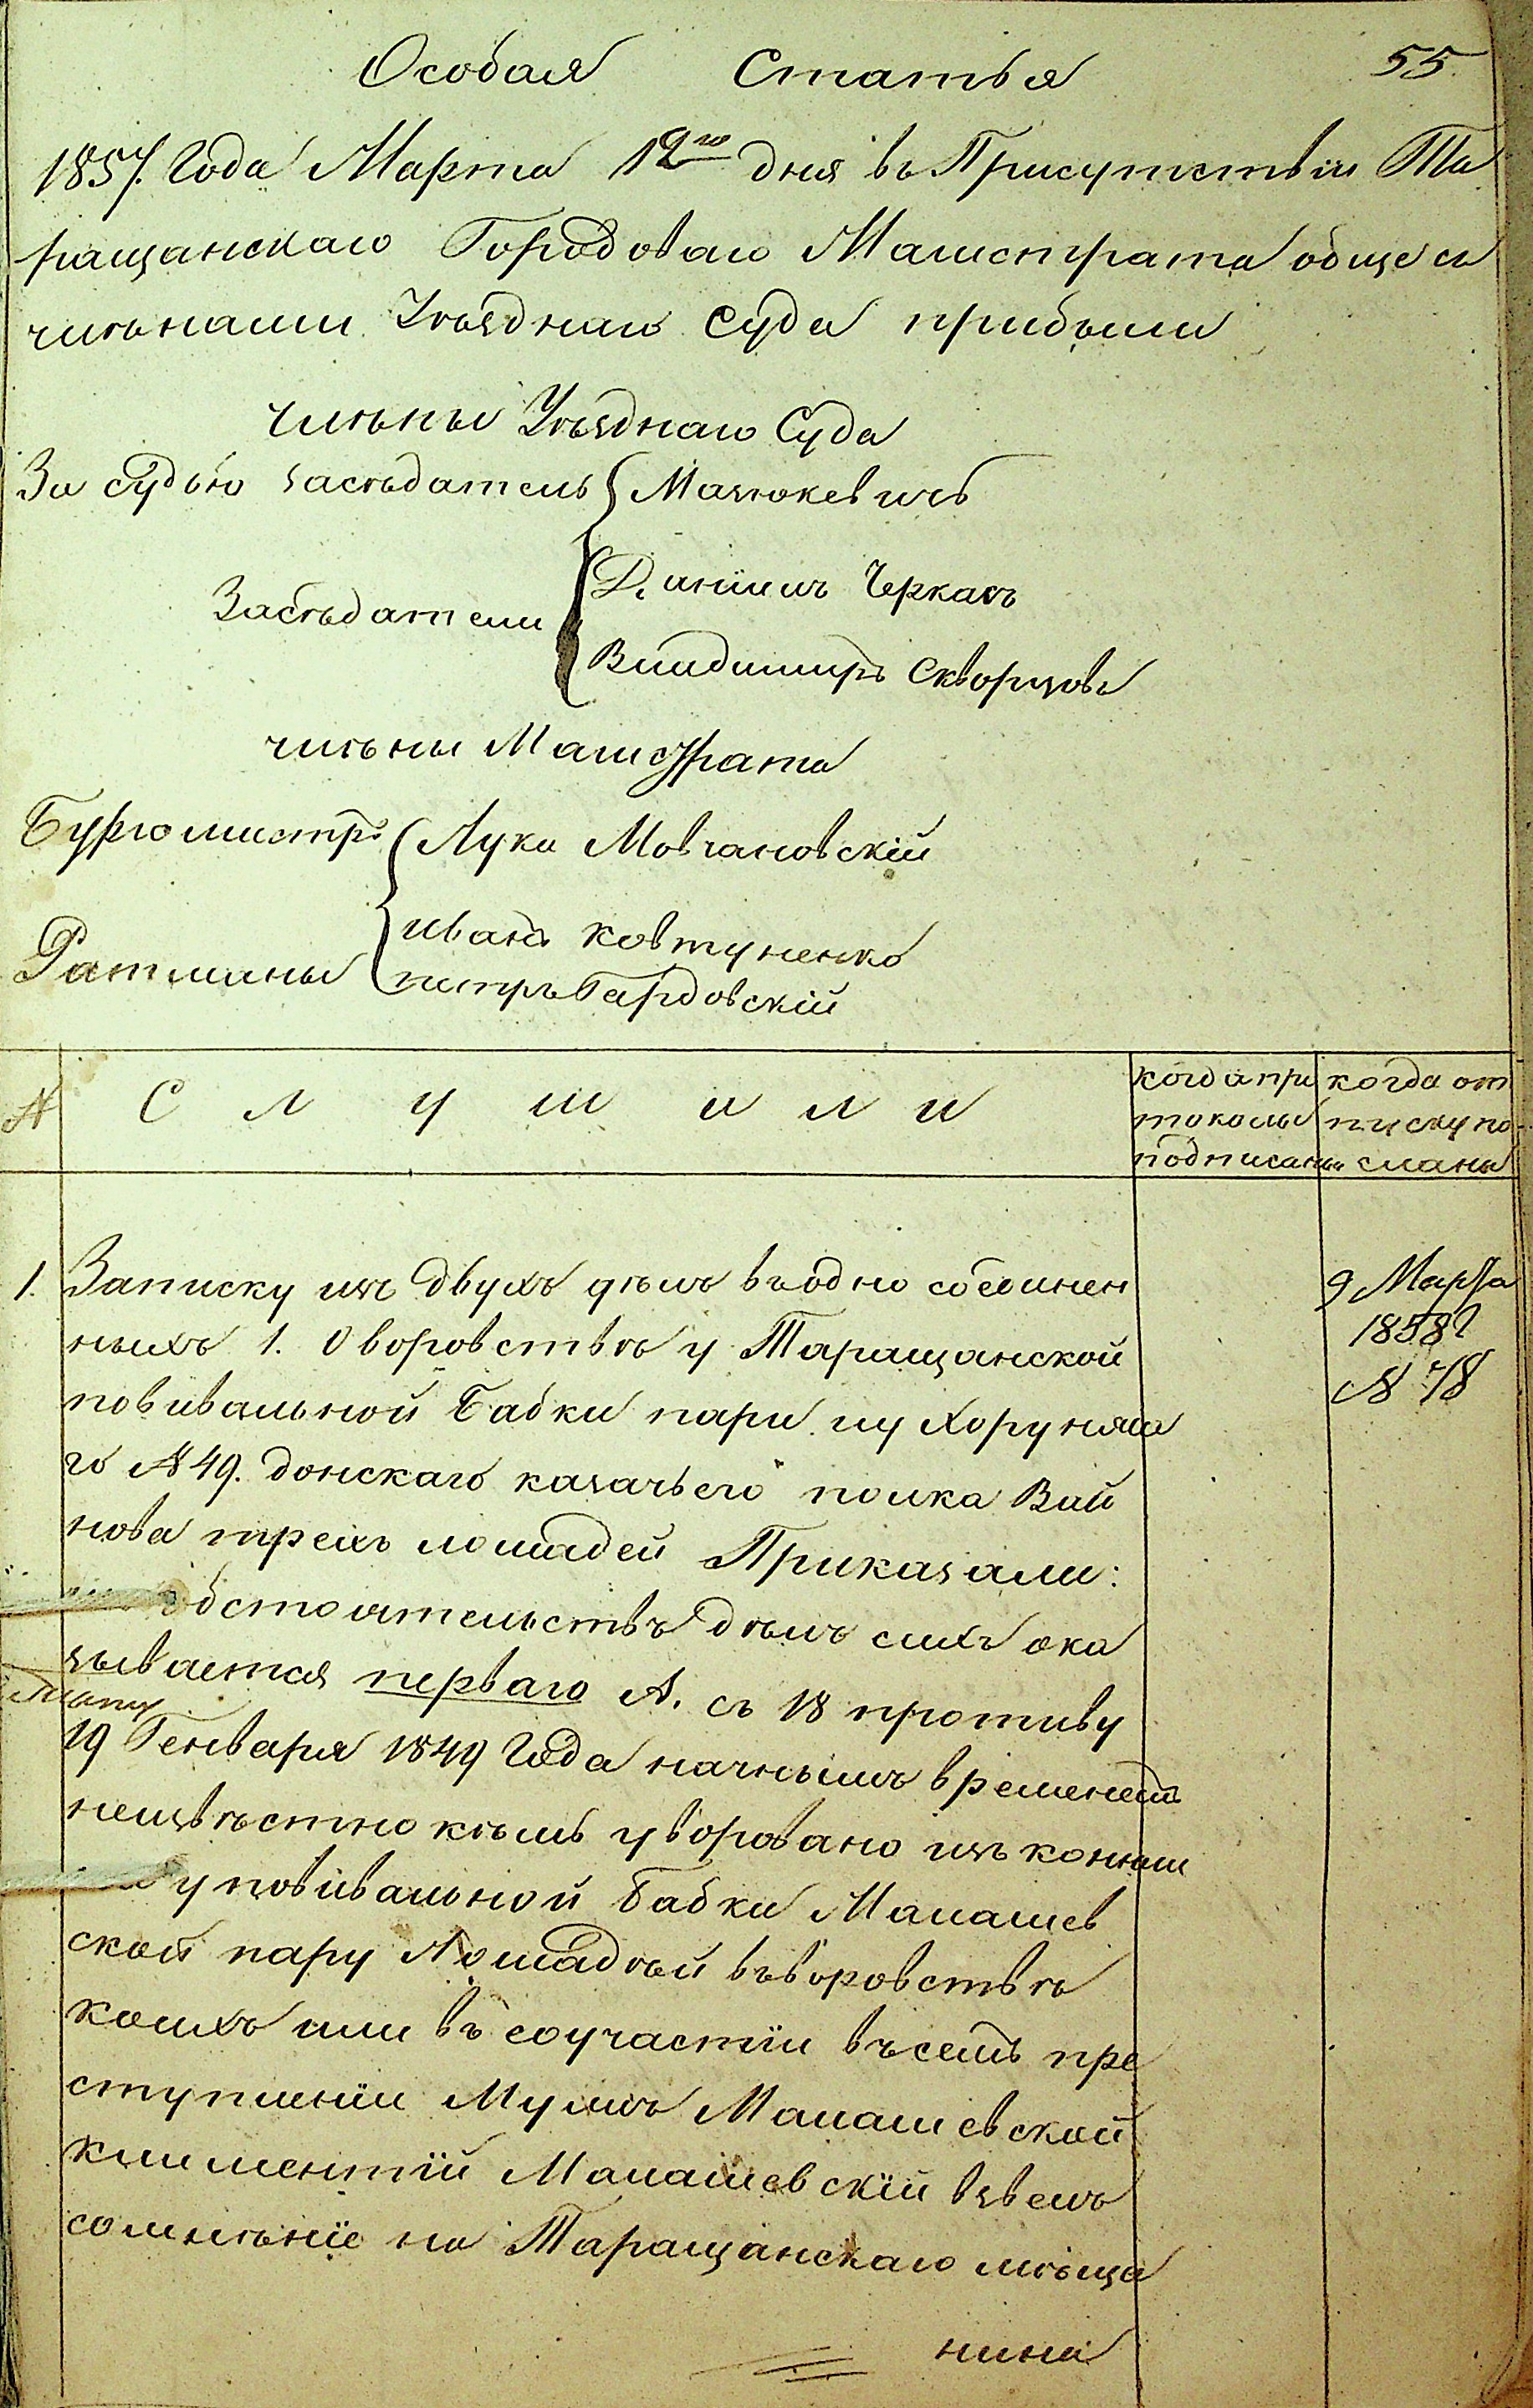 Особая Статья 55.
1857. Года Марта 12го дня въ Присутствіи Та
ращанскаго Городоваго Магистрата обще съ
членами Уѣзднаго Суда прибыли
члѣны Уѣзднаго Суда
За судью засѣдатель Мацюкевичъ
Засѣдатели
Даніилъ Черкасъ
Владимиръ Скворцовъ
члѣны Магистрата
Бургомистръ Лука Мовчановскій
Ратманы
иванъ Ковтуненко
петръ Гардовскій
№ Слушали
когда про
токолы
подписаны
когда от
пуску по
сланы
1. Записку изъ двухъ дѣлъ въ одно соединен
ныхъ 1. О воровствѣ у Таращанской
повивальной Бабки пары и у Хорунжа
го № 49. донскаго казачьего полка Вай
нова трехъ лошадей Приказали:
обстоятельствъ дѣлъ сихъ ока
зывается перваго А. съ 18 противу
19 Генваря 1849 Года начнымъ временемъ
неизвѣстно кѣмъ уворовано изъ конюш
у повивальной Бабки Малашев
ской пару Лошадѣй въ воровствѣ
коихъ или въ соучастіи въ семъ пре
ступленіи Мужъ Малашевской
климентій Малашевскій взвелъ
сомнѣніе на Таращанскаго мѣща
нина
9 Марта
1858 г
№ 78